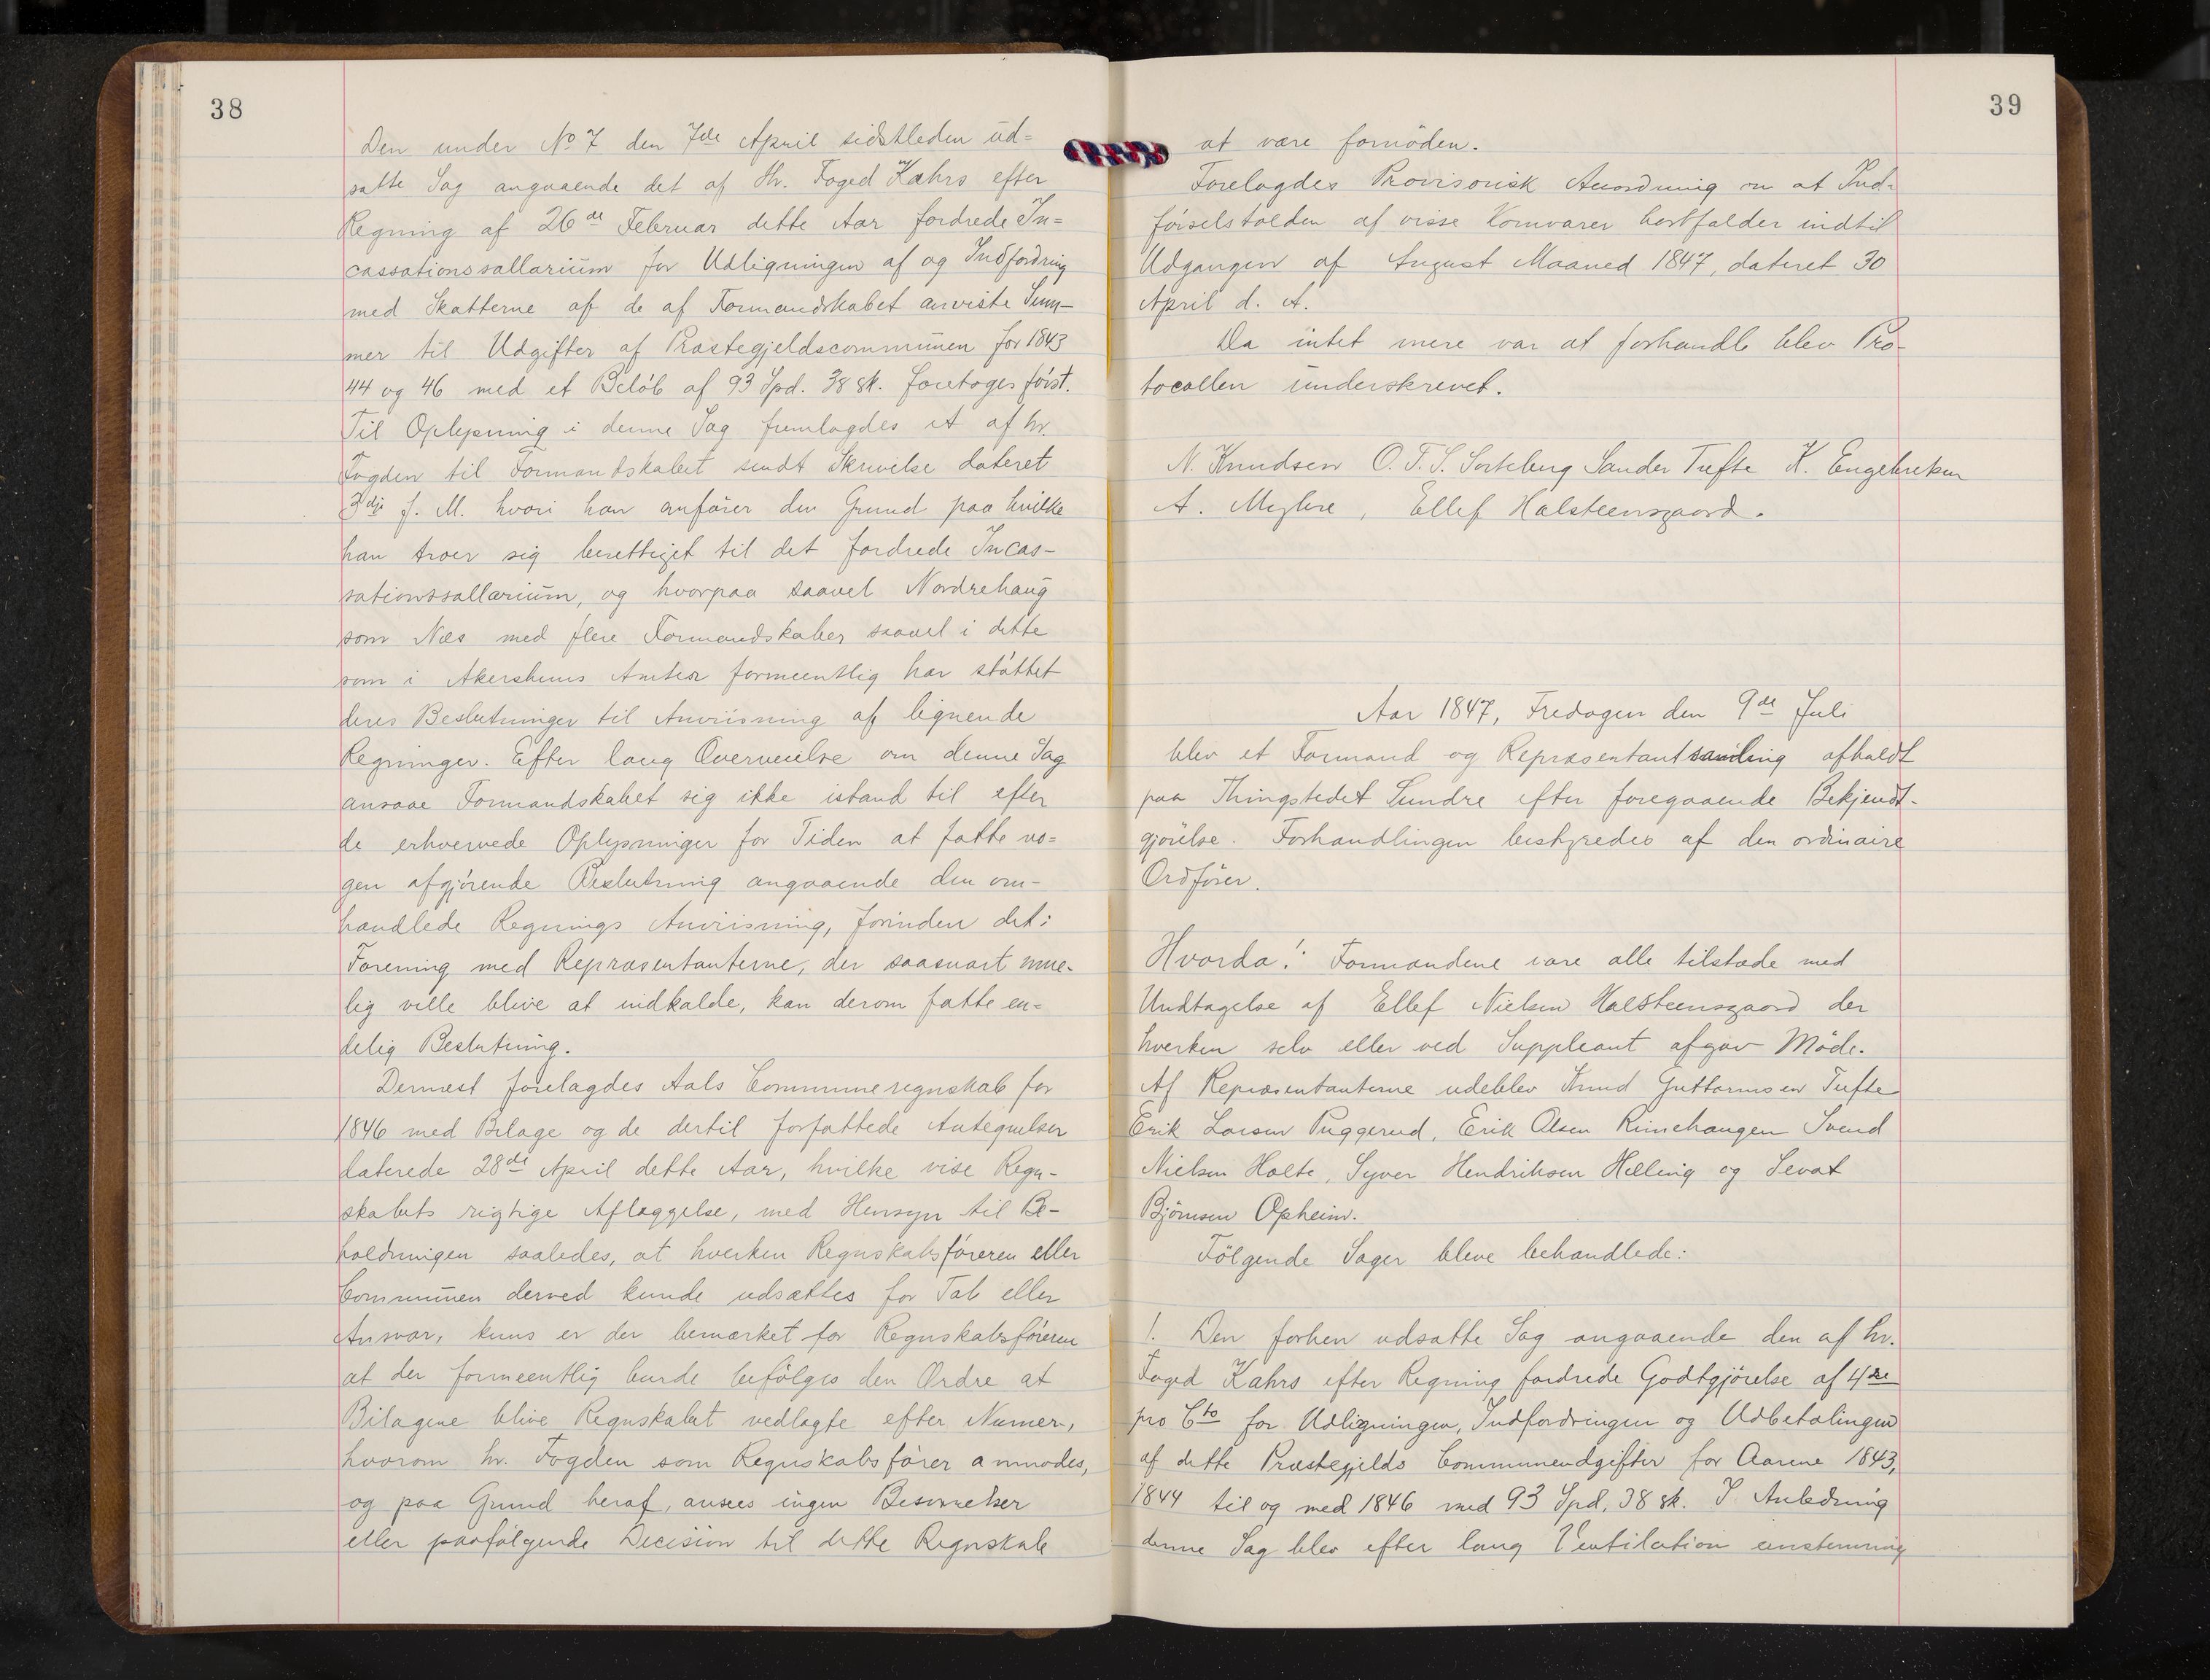 38
Den under No 7 den 7de April sidstleden ud=
satte Sag angaaende det af Hr. Foged Kahrs efter
Regning af 26de Februar dette Aar fordrede In=
cassationssallarium for Udligningen af og Indfordring
med Skatterne af de af Formandskabet anviste Sum-
mer til Udgifter af Præstegjeldscommunen for 1843
44 og 46 med et Beløb af 93 Spd. 38 sk. foretoges først.
Til Oplysning i denne Sag fremlagdes et af hr.
Fogden til Formandskabet sendt Skrivelse dateret
3die f. M. hvori han anfører den Grund paa hvilke
han troer sig berettiget til det fordrede Incas-
sationssallarium, og hvorpaa saavel Nordrehaug
som Næs med flere Formandskaber saavel i dette
som i Akershuus Amter formeentlig har støttet
deres Beslutninger til Anviisning af lignende
Regninger. Efter lang Overveielse om denne Sag
ansaae Formandskabet sig ikke istand til efter
de erhvervede Oplysninger for Tiden at fatte no=
gen afgjørende Beslutning angaaende den om-
handlede Regnings Anviisning, forinden det i
Forening med Repræsentanterne, der saasnart mue-
lig ville blive at indkalde, kan derom fatte en=
delig Beslutning.
Dernæst forelagdes Aals Communeregnskab for
1846 med Bilage og de dertil forfattede Antegnelser
daterede 28de April dette Aar, hvilke vise Regn-
skabets rigtige Aflæggelse, med Hensyn til Be-
holdningen saaledes, at hverken Regnskabsføreren eller
Communen derved kunde udsættes for Tab eller
Ansvar, kuns er der bemærket for Regnskabsføreren
at der formeentlig burde befølges den Ordre at
Bilagene blive Regnskabet vedlagte efter Numer,
hvorom hr. Fogden som Regnskabsfører anmodes,
og paa Grund heraf, ansees ingen Besvarelser
eller paafølgende Decision til dette Regnskab
39
at være fornøden.
Forelagdes Provisorisk Anordning om at Ind-
førselstolden af visse Kornvarer bortfalder indtil
Udgangen af August Maaned 1847, dateret 30
April d. A.
Da intet mere var at forhandle blev Pro-
tocollen underskrevet.
N. Knudsen O. T. S. Sorteberg Sander Tufte K. Engebretsen
A. Myhre, Ellef Halsteensgaard.
Aar 1847, Fredagen den 9de Juli
blev et Formand og Repræsentantsamling afholdt
paa Thingstedet Sundre efter foregaaende Bekjendt-
gjørelse. Forhandlingen bestyredes af den ordinaire
Ordfører.
Hvorda! Formandene vare alle tilstæde med
Undtagelse af Ellef Nielsen Halsteensgaard der
hverken selv eller ved Suppleant afgav Møde.
Af Repræsentanterne udeblev Knud Guttormsen Tufte
Erik Larsen Puggerud, Erik Olsen Rimehaugen Svend
Nielsen Holte, Syver Hendriksen Helling og Sevat
Bjørnsen Opheim.
Følgende Sager bleve behandlede:
1. Den forhen udsatte Sag angaaende den af hr.
Foged Kahrs efter Regning fordrede Godtgjørelse af 4re
pro Cto for Udligningen, Indfordringen og Udbetalingen
af dette Præstegjelds Communeudgifter for Aarene 1843,
1844 til og med 1846 med 93 Spd, 38 sk. I Anledning
denne Sag blev efter lang Ventilation eenstemmig